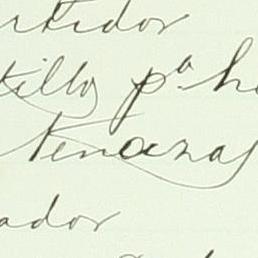 rtidor
tillos pª h
Tenazas
ador